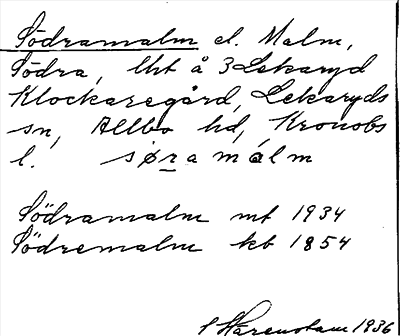 Södramalm el. Malm,
Södra, lht å 3 Lekaryd
Klockaregård, Lekaryds
sn, Allbo hd, Kronobs
l. søramálm
Södramalm mt 1934
Södremalm kb 1854
Harenstam 1936